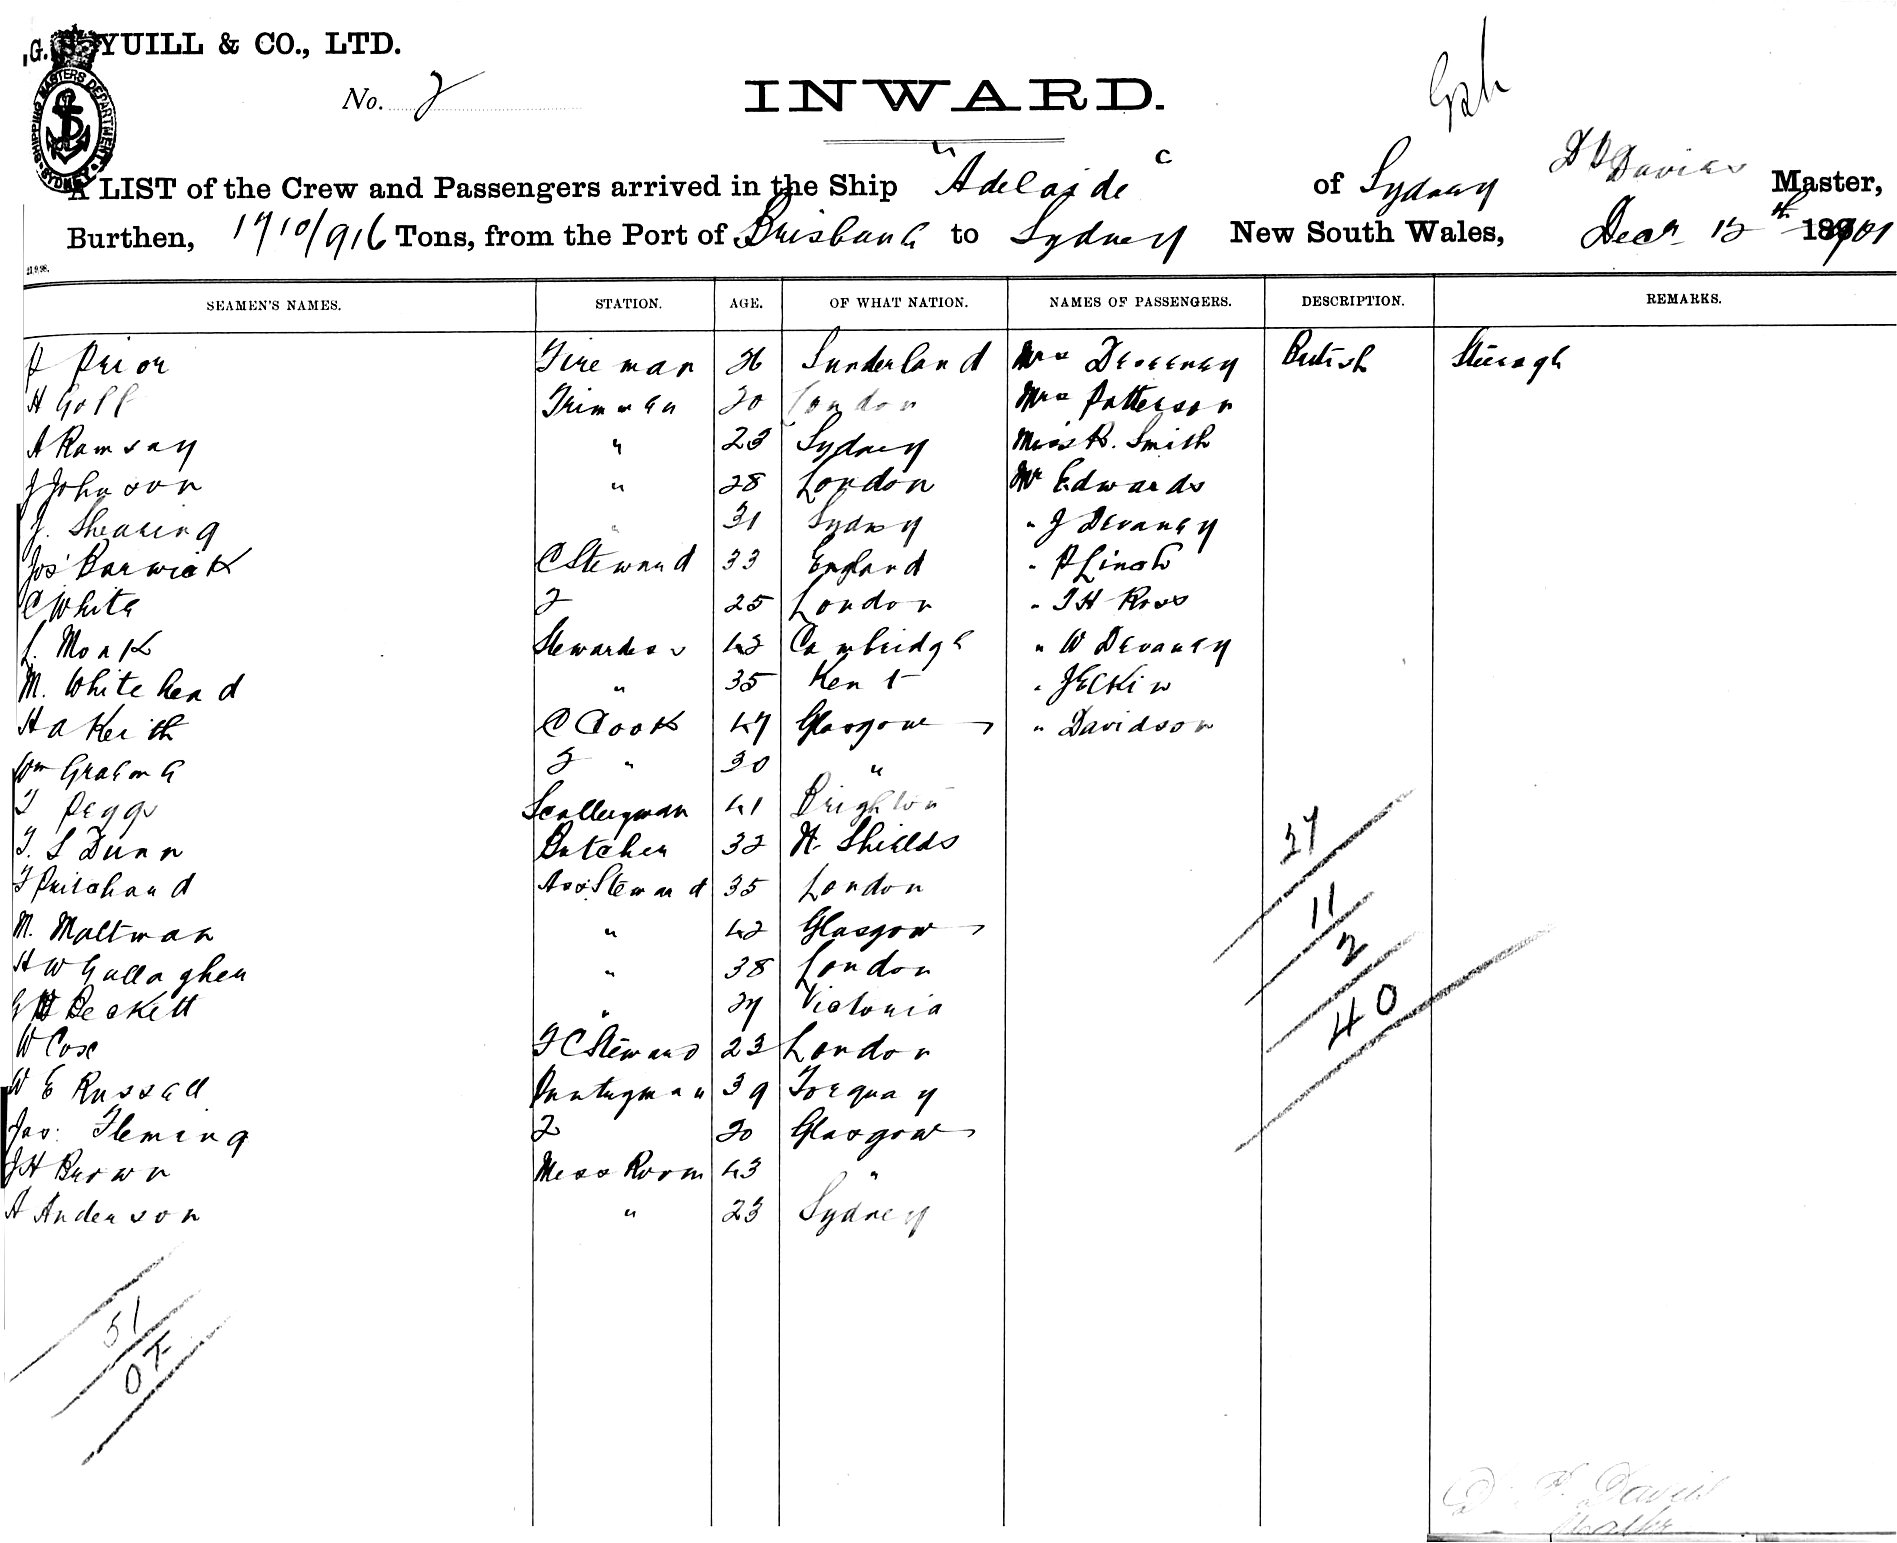 G. S. YUILL & CO., LTD.
SHIPPING MASTERS DEPARTMENT SYDNEY
No. 2
INWARD.
A LIST of the Crew and Passengers arrived in the Ship "Adelaide" of Sydney D D Davies Master,
Burthen, 1710/916 Tons, from the Port of Brisbane to Sydney New South Wales, Decr 12th 1901
21.9.98.
SEAMEN'S NAMES. STATION. AGE. OF WHAT NATION. NAMES OF PASSENGERS. DESCRIPTION. REMARKS.
P Prior Fireman 26 Sunderland Mrs Deveney British Steerage
H Goff Trimmer 20 London Mrs Patterson
A Ramsay " 23 Sydney Miss R. Smith
J Johnson " 28 London Mr Edwards
J. Shearing " 31 Sydney " J Devaney
Jos Barwick C Steward 33 England " P Linch
C White 2 25 London " T H Ross
L. Monk Stewardess 42 Cambridge " W Devaney
M. Whitehead " 35 Kent "
H A Keith C Cook 47 Glasgow " Davidson
Wm Grahma 2 " 30 "
T Peggs Sculleryman 41 Brighton
T. S Dunn Butcher 32 N. Shields 27
T Pritchard Ass Steward 35 London 11
M. Maltman " 42 Glasgow 2
H W Gallagher " 38 London
G H Beckett " 27 Victoria 40
W Cox F C Steward 23 London
W E Russell Pantryman 39 Torquay
Jas: Fleming 2 20 Glasgow
J H Brown Mess Room 43 "
A Anderson " 23 Sydney
51
Davies